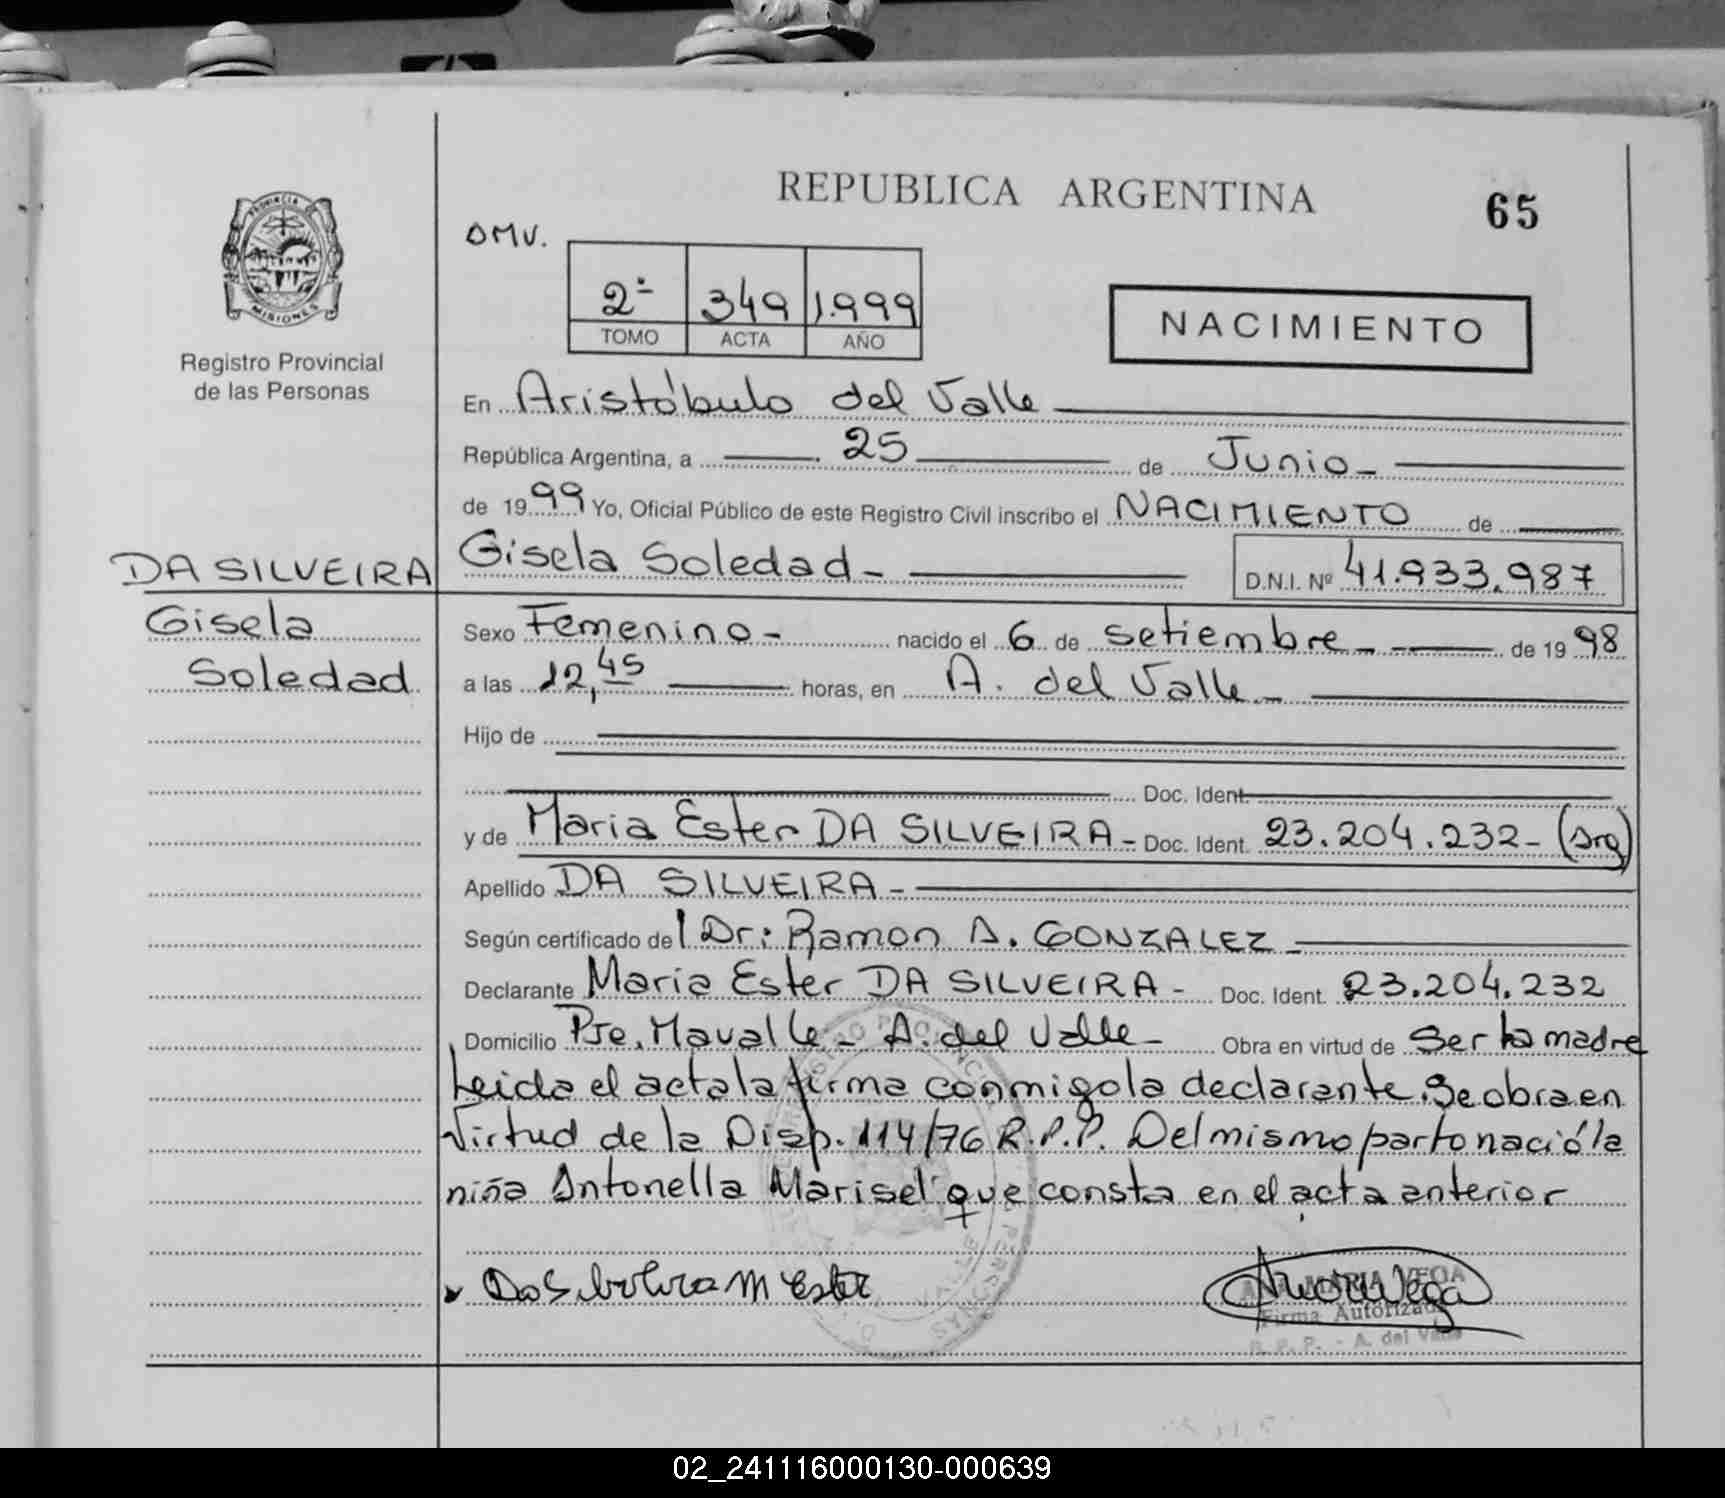 REPUBLICA ARGENTINA
65
PROVINCIA DE
MISIONES
Registro Provincial
de las Personas
OMV.
2º 349 1.999
TOMO ACTA AÑO
NACIMIENTO
En Aristóbulo del Valle
República Argentina, a 25 de Junio
de 1999 Yo, Oficial Público de este Registro Civil inscribo el NACIMIENTO de
DA SILVEIRA
Gisela
Soledad
Gisela Soledad
D.N.I. Nº 41.933.987
Sexo Femenino nacido el 6 de setiembre de 1998
a las 12,45 horas, en A. del Valle
Hijo de
Doc. Ident.
y de Maria Ester DA SILVEIRA Doc. Ident. 23.204.232 (Arg)
Apellido DA SILVEIRA
Según certificado del Dr: Ramon A. GONZALEZ
Declarante Maria Ester DA SILVEIRA Doc. Ident. 23.204.232
Domicilio Pje. Mavalle - A. del Valle Obra en virtud de ser la madre
Leida el acta la firma conmigo la declarante. Se obra en
virtud de la Disp. 114/76 R.P.P. Del mismo parto nació la
niña Antonella Marisel que consta en el acta anterior
Da Silveira M Ester
ANA MARIA VEGA
Firma Autorizada
R. P. P. - A. del Valle
02_241116000130-000639